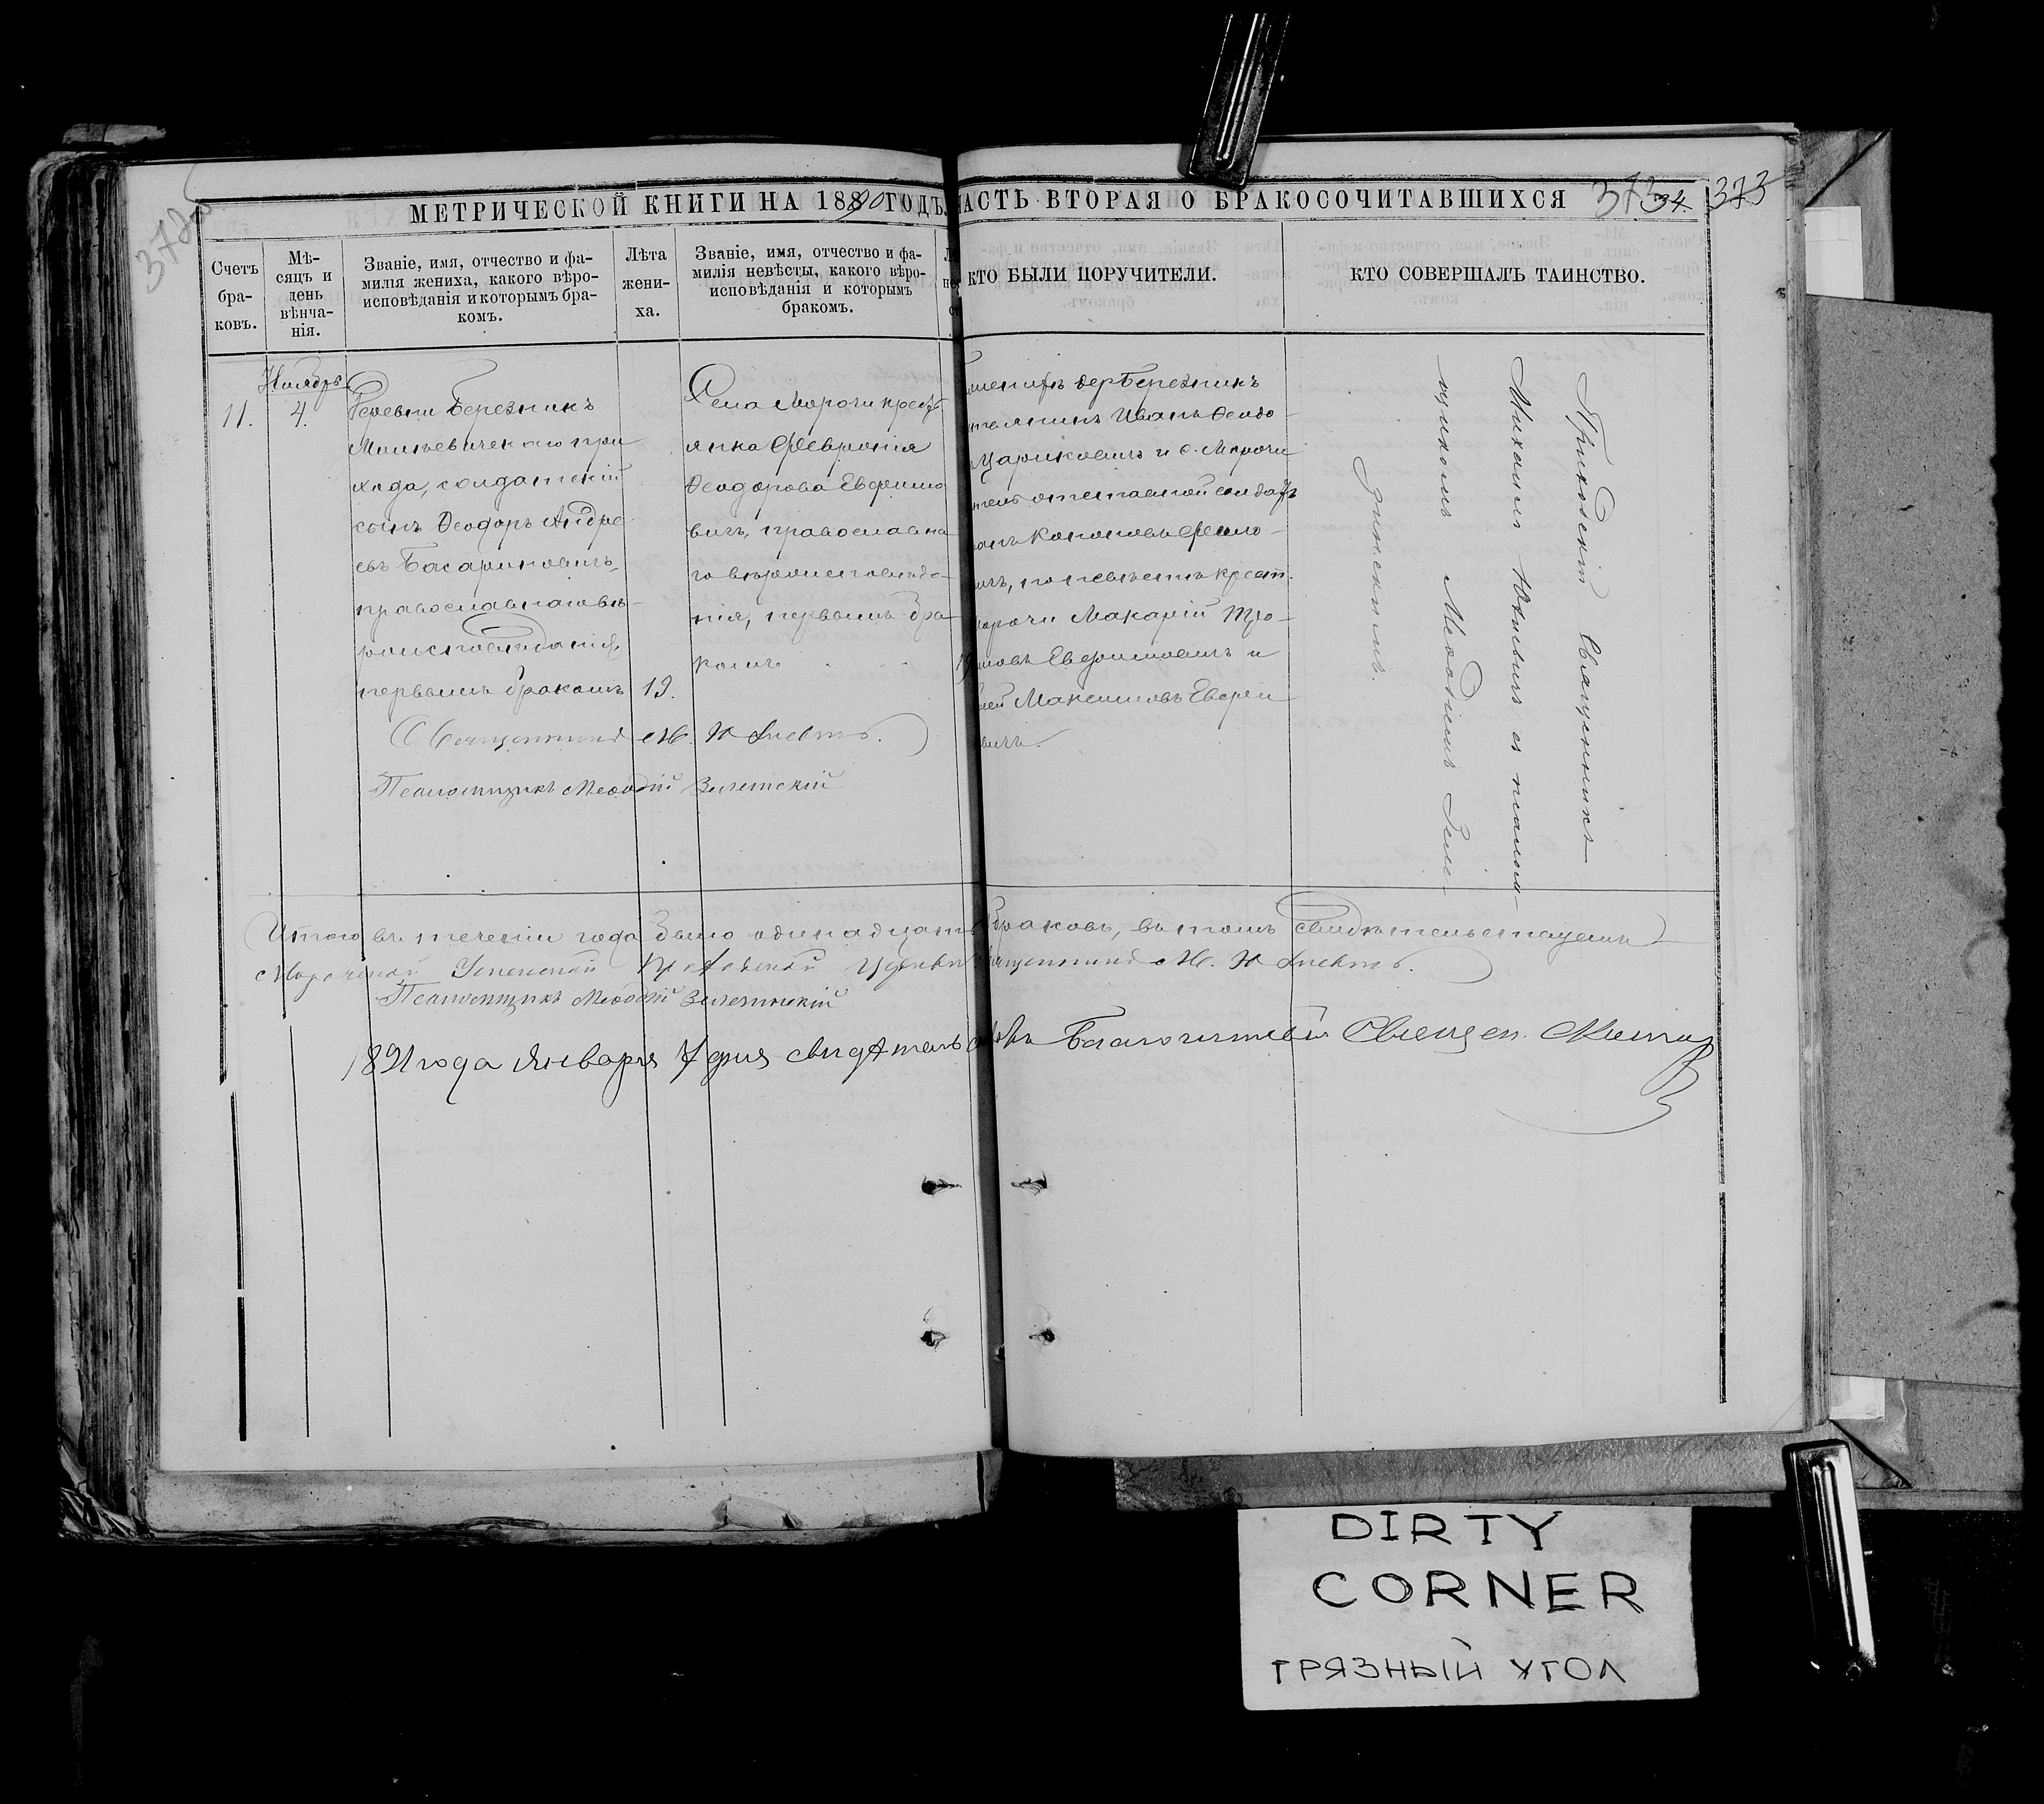 МЕТРИЧЕСКОЙ КНИГИ НА 1890 ГОДЪ
АСТЬ ВТОРАЯ О БРАКОСОЧИТАВШИХСЯ
373
34.
373
Счетъ бра-ковъ.
Мѣ-сяцъ и день вѣнча-нія.
Званіе, имя, отчество и фа-
милія жениха, какого вѣро-
исповѣданія и которымъ бра-
комъ.
Лѣта жени-ха.
Званіе, имя, отчество и фа-
милія невѣсты, какого вѣро-
исповѣданія и которымъ
бракомъ.
КТО БЫЛИ ПОРУЧИТЕЛИ.
КТО СОВЕРШАЛЪ ТАИНСТВО.
Ноябрь
11.
4.
Деревни Березникъ
при
хода, солдатскій
сынъ Ѳеодоръ Андре
евъ Басариновичъ,
православнаго вѣ-
роисповѣданія,
первымъ бракомъ
19.
Села Морочи крест
янка Феврония
Ѳеодорова Ефимо
вичъ, православна
го вѣроисповѣда-
нія, первымъ бра-
комъ
дер Березникъ
Иванъ Ѳеодо-
и с. Морочи
отставной солдатъ
Кононовъ
по невѣстѣ крест.
орочи Макарій Тро-
имовъ Ефимовичъ и
Максимовъ Ефим
вичъ.
Приходскій Священникъ
Михаилъ Юневичъ съ псалом-
щикомъ Меѳодіемъ Зили-
тинскимъ.
Священникъ М. Юневичъ.
Псаломщикъ Меѳодій Зилитинскій
Итого въ теченіи года было одинадцать браковъ, въ томъ свидѣтельствуемъ
Морочской Успенской Приходской Церкви Священникъ М. Юневичъ.
Псаломщикъ Меѳодій Зилитинскій
1891 года Января 7 дня свидѣтельствовалъ Благочинный Священ.
DIRTY
CORNER
ГРЯЗНЫЙ УГОЛ